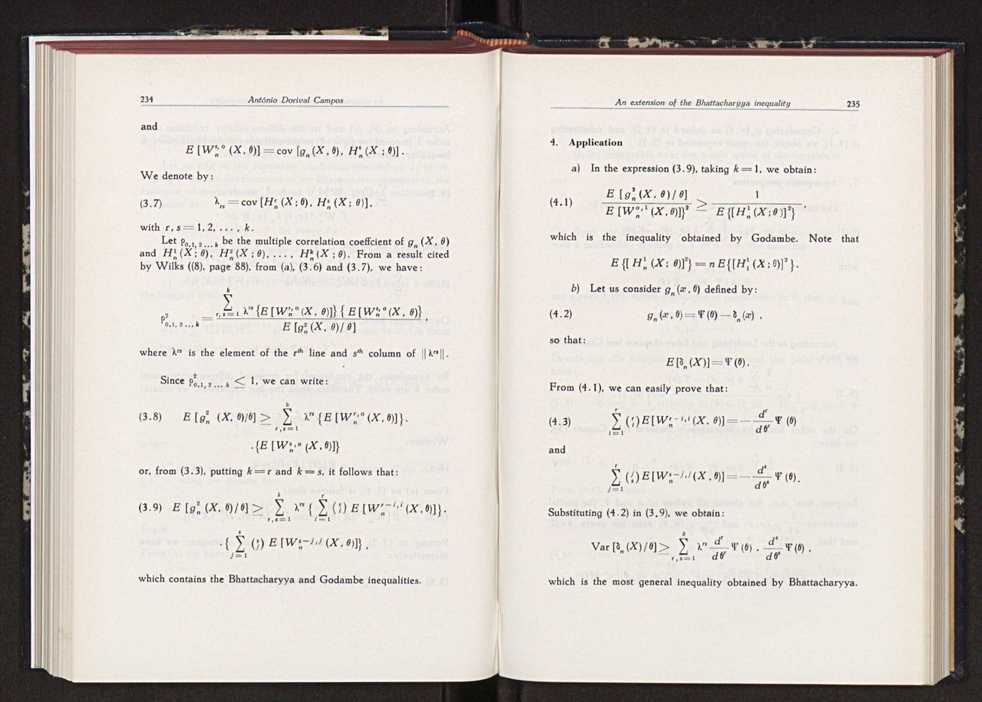 234 António Dorival Campos
and
E [W_n^{s,o} (X, θ)] = cov [g_n (X, θ), H_n^s (X ; θ)].
We denote by :
(3.7) λ_{rs} = cov [H_n^r (X ; θ), H_n^s (X ; θ)],
with r, s = 1, 2, ... , k.
Let ρ_{0,1,2...k} be the multiple correlation coeffcient of g_n (X, θ)
and H_n^1 (X ; θ), H_n^2 (X ; θ), ... , H_n^k (X ; θ). From a result cited
by Wilks ((8), page 88), from (a), (3.6) and (3.7), we have :
ρ^2_{0,1,2...k} = \frac{\sum_{r,s=1}^{k} λ^{rs} {E [W_n^{r,o} (X, θ)]} {E [W_n^{s,o} (X, θ)}}{E [g_n^2 (X, θ)/ θ]} ,
where λ^{rs} is the element of the r^{th} line and s^{th} column of || λ^{rs} ||.
Since ρ^2_{0,1,2...k} ≤ 1, we can write :
(3.8) E [g_n^2 (X, θ)/θ] ≥ \sum_{r,s=1}^{k} λ^{rs} {E [W_n^{r,o} (X, θ)]}.
.{E [W_n^{s,o} (X, θ)]}
or, from (3.3), putting k = r and k = s, it follows that :
(3.9) E [g_n^2 (X, θ)/θ] ≥ \sum_{r,s=1}^{k} λ^{rs} { \sum_{i=1}^{r} (^r_i) E [W_n^{r-i,i} (X, θ)]}.
.{ \sum_{j=1}^{s} (^s_j) E [W_n^{s-j,j} (X, θ)]} ,
which contains the Bhattacharyya and Godambe inequalities.
An extension of the Bhattacharyya inequality 235
4. Application
a) In the expression (3.9), taking k = 1, we obtain :
(4.1) \frac{E [g_n^2 (X, θ) / θ]}{E [W_n^{o,1} (X, θ)]}^2} ≥ \frac{1}{E {[H_n^1 (X ; θ)]^2}} ,
which is the inequality obtained by Godambe. Note that
E {[ H_n^1 (X ; θ)]^2} = n E {[H_1^1 (X ; θ)]^2 }.
b) Let us consider g_n (x, θ) defined by :
(4.2) g_n (x, θ) = Ψ (θ) — δ_n (x) ,
so that :
E [δ_n (X)] = Ψ (θ).
From (4.1), we can easily prove that :
(4.3) \sum_{i=1}^{r} (^r_i) E [W_n^{r-i,i} (X, θ)] = — \frac{d^r}{d θ^r} Ψ (θ)
and
\sum_{j=1}^{r} (^j_s) E [W_n^{s-j,j} (X, θ)] = — \frac{d^s}{d θ^s} Ψ (θ).
Substituting (4.2) in (3.9), we obtain :
Var [δ_n (X) / θ] ≥ \sum_{r,s=1}^{k} λ^{rs} \frac{d^r}{d θ^r} Ψ (θ) . \frac{d^s}{d θ^s} Ψ (θ) ,
which is the most general inequality obtained by Bhattacharyya.